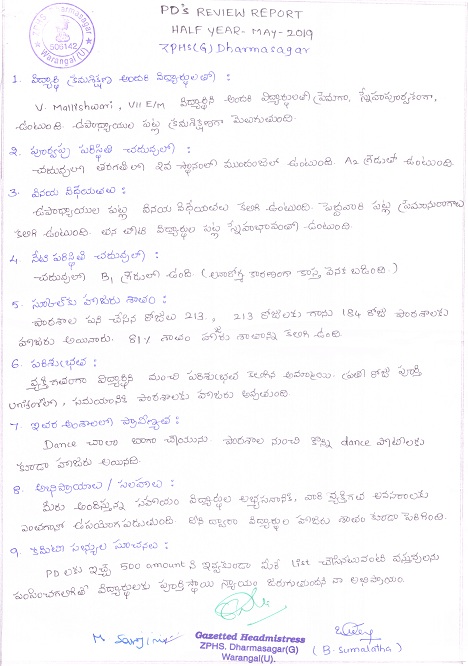 PD's REVIEW REPORT
HALF YEAR - MAY - 2019
ZPHS(G) Dharmasagar
ZPHS Dharmasagar
506142
Warangal (U)
1. విద్యార్థి క్రమశిక్షణ అందరి విద్యార్థులతో :
V. Malleshwari, VII E/M విద్యార్థిని అందరి విద్యార్థులతో ప్రేమగా, స్నేహపూర్వకంగా,
ఉంటుంది. ఉపాధ్యాయుల పట్ల క్రమశిక్షణగా మెలుగుతుంది.
2. పూర్వపు పరిస్థితి చదువులో :
చదువులో తరగతిలో 2వ స్థానంలో ముందంజలో ఉంటుంది. A2 గ్రేడులో ఉంటుంది.
3. వినయ విధేయతలు :
ఉపాధ్యాయుల పట్ల వినయ విధేయతలు కలిగి ఉంటుంది. పెద్దవారి పట్ల ప్రేమానురాగాలు
కలిగి ఉంటుంది. తన తోటి విద్యార్థుల పట్ల స్నేహభావంతో ఉంటుంది.
4. నేటి పరిస్థితి చదువులో :
చదువులో B1 గ్రేడులో ఉంది. (అనారోగ్య కారణంగా కాస్త వెనక బడింది.)
5. స్కూల్‌కు హాజరు శాతం :
పాఠశాల పని చేసిన రోజులు 213, 213 రోజులకు గాను 184 రోజు పాఠశాలకు
హాజరు అయినారు. 81% శాతం హాజరు శాతాన్ని కలిగి ఉంది
6. పరిశుభ్రత :
వ్యక్తిగతంగా విద్యార్థిని మంచి పరిశుభ్రత కలిగిన అమ్మాయి. ప్రతి రోజు పూర్తి
యూనిఫాంలో, సమయానికి పాఠశాలకు హాజరు అవుతుంది
7. ఇతర అంశాలలో ప్రావీణ్యత :
Dance చాలా బాగా చేయును. పాఠశాల నుంచి కొన్ని dance పోటీలకు
కూడా హాజరు అయినది.
8. అభిప్రాయాలు / సలహాలు :
మీరు అందిస్తున్న సహాయం విద్యార్థుల అభ్యసనానికి, వారి వ్యక్తిగత అవసరాలకు
ఎంతగానో ఉపయోగపడుతుంది దీని ద్వారా విద్యార్థుల హాజరు శాతం కూడా పెరిగింది.
9. కమిటీ సభ్యుల సూచనలు :
PD లకు ఇచ్చే 500 amount ని ఇవ్వకుండా మీకే List చేసినటువంటి వస్తువులను
పంపించగలిగితే విద్యార్థులకు పూర్తిస్థాయి న్యాయం జరుగుతుందని నా అభిప్రాయం.
Gazetted Headmistress
ZPHS. Dharmasagar(G)
Warangal(U).
(B. Sumalatha)